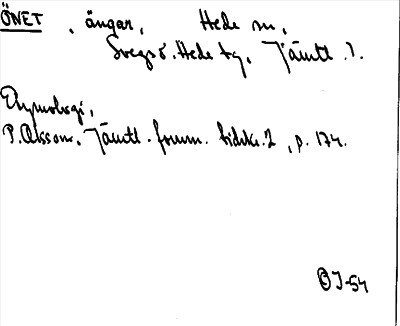 ÖNET, ängar, Hede sn,
Svegs o. Hede tg, Jämtl. l.
Etymologi,
P. Olsson, Jämtl. fornm. tidskr. 2, p. 174.
OJ-54